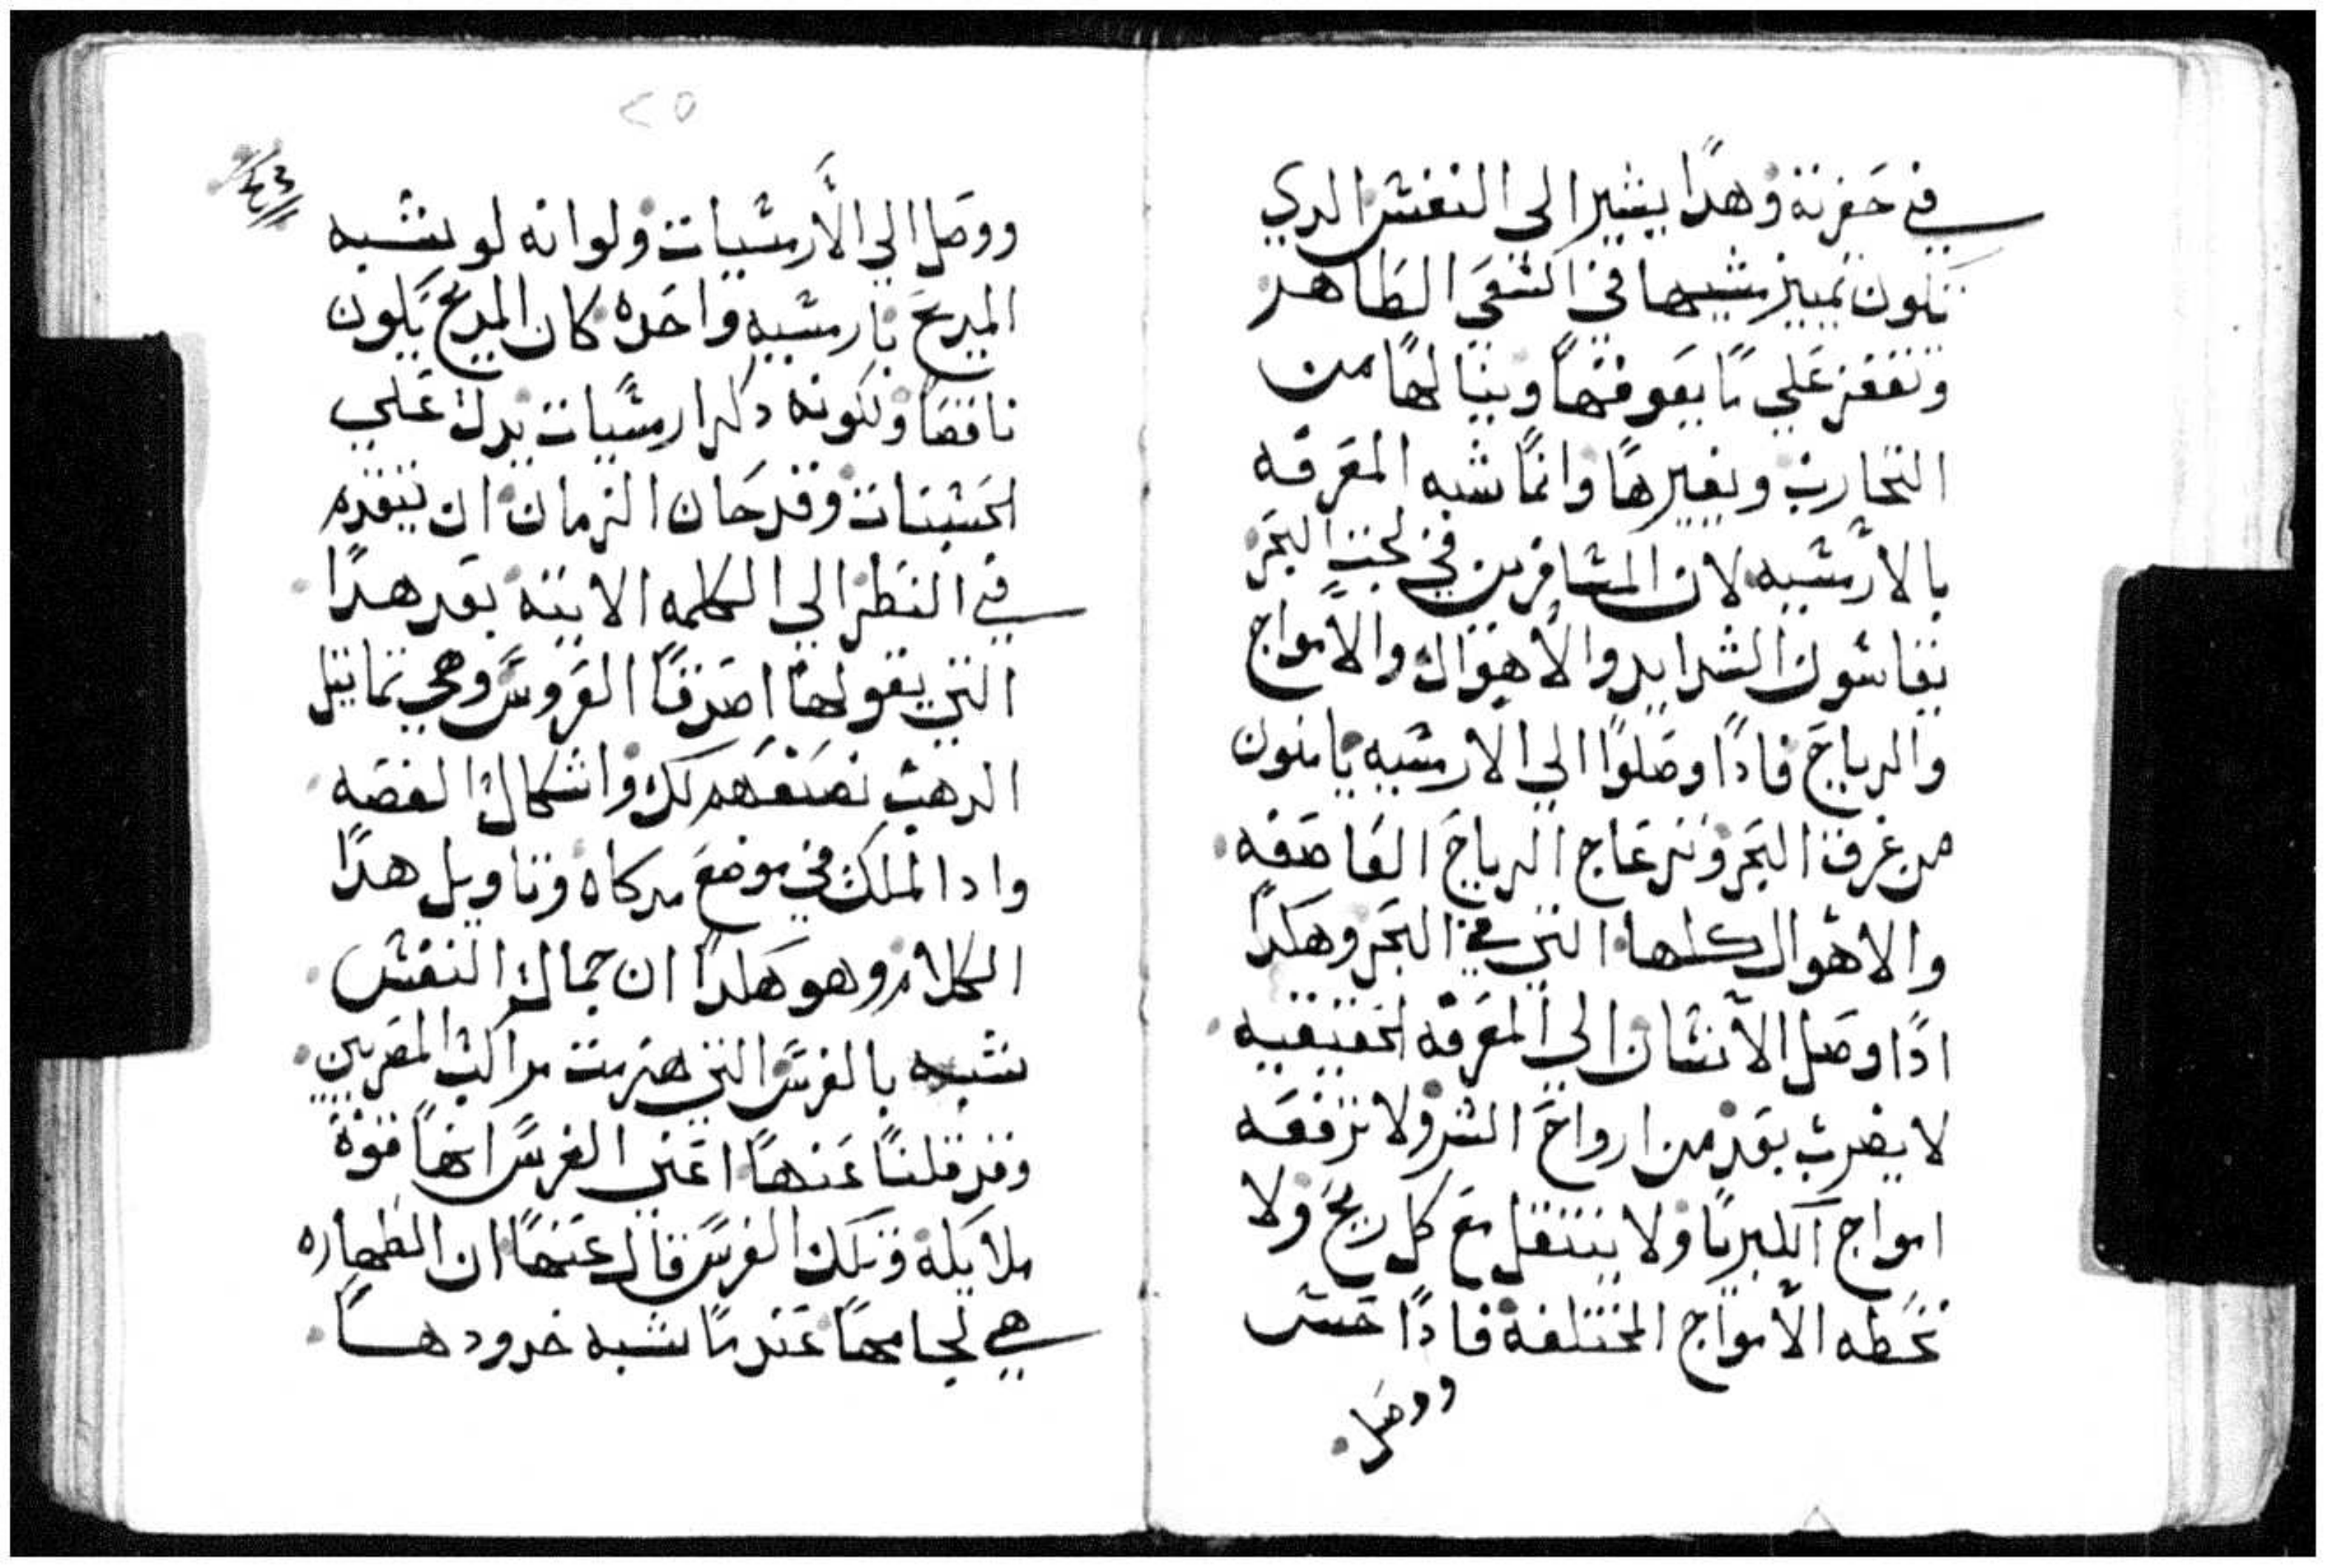 في حفرته وهدا يشير الى النفش الدي
تكون تمييز شبيهها في الشقي الطاهر
وتقفز علي ما يعوقها وينالها من
التجارب ويغيرها وانما شبه المعرفه
بالارشيه لان المشافرين في لجت البحر
يقاشون الشدايد والاهوال والامواج
والرياح فادا وصلوا الي الارشيه يامنون
من غرق البحر وتزعاج الرياح العاصفه
والاهوال كلها التي في البحر وهكدا
ادا وصل الانشان الي المعرفه الحقيقيه
لا يضرب بعد من ارواح الشر ولا ترفعه
امواج الكبريا ولا ينتقل مع كل ريح ولا
تخطه الامواج المختلفة فادا حش
ووصل
٢٥
٤٣
ووصل الي الارشيات ولوانه لو يشبه
المديح بارشيه واحده كان المديح يكون
ناقصا ولكونه دكر ارشيات يدل علي
الحشنات وقد حان الزمان ان نتقدم
في النظر الي الكلمه الاتيه بعد هدا
التي يقولها اصدقا العروس وهي تماتيل
الدهب نصنعهم لك واشكال الفضه
وادا الملك في موضع مركاه وتاويل هدا
الكلام وهو هكدا ان جمال النفش
شبه بالفرس التي هزمت مراكب المصريين
وقد قلنا عنها اعني الفرس انها قوة
ملايكة وتلك الفرس قال عنها ان الطهاره
هي لجامها عندما شبه خدودها